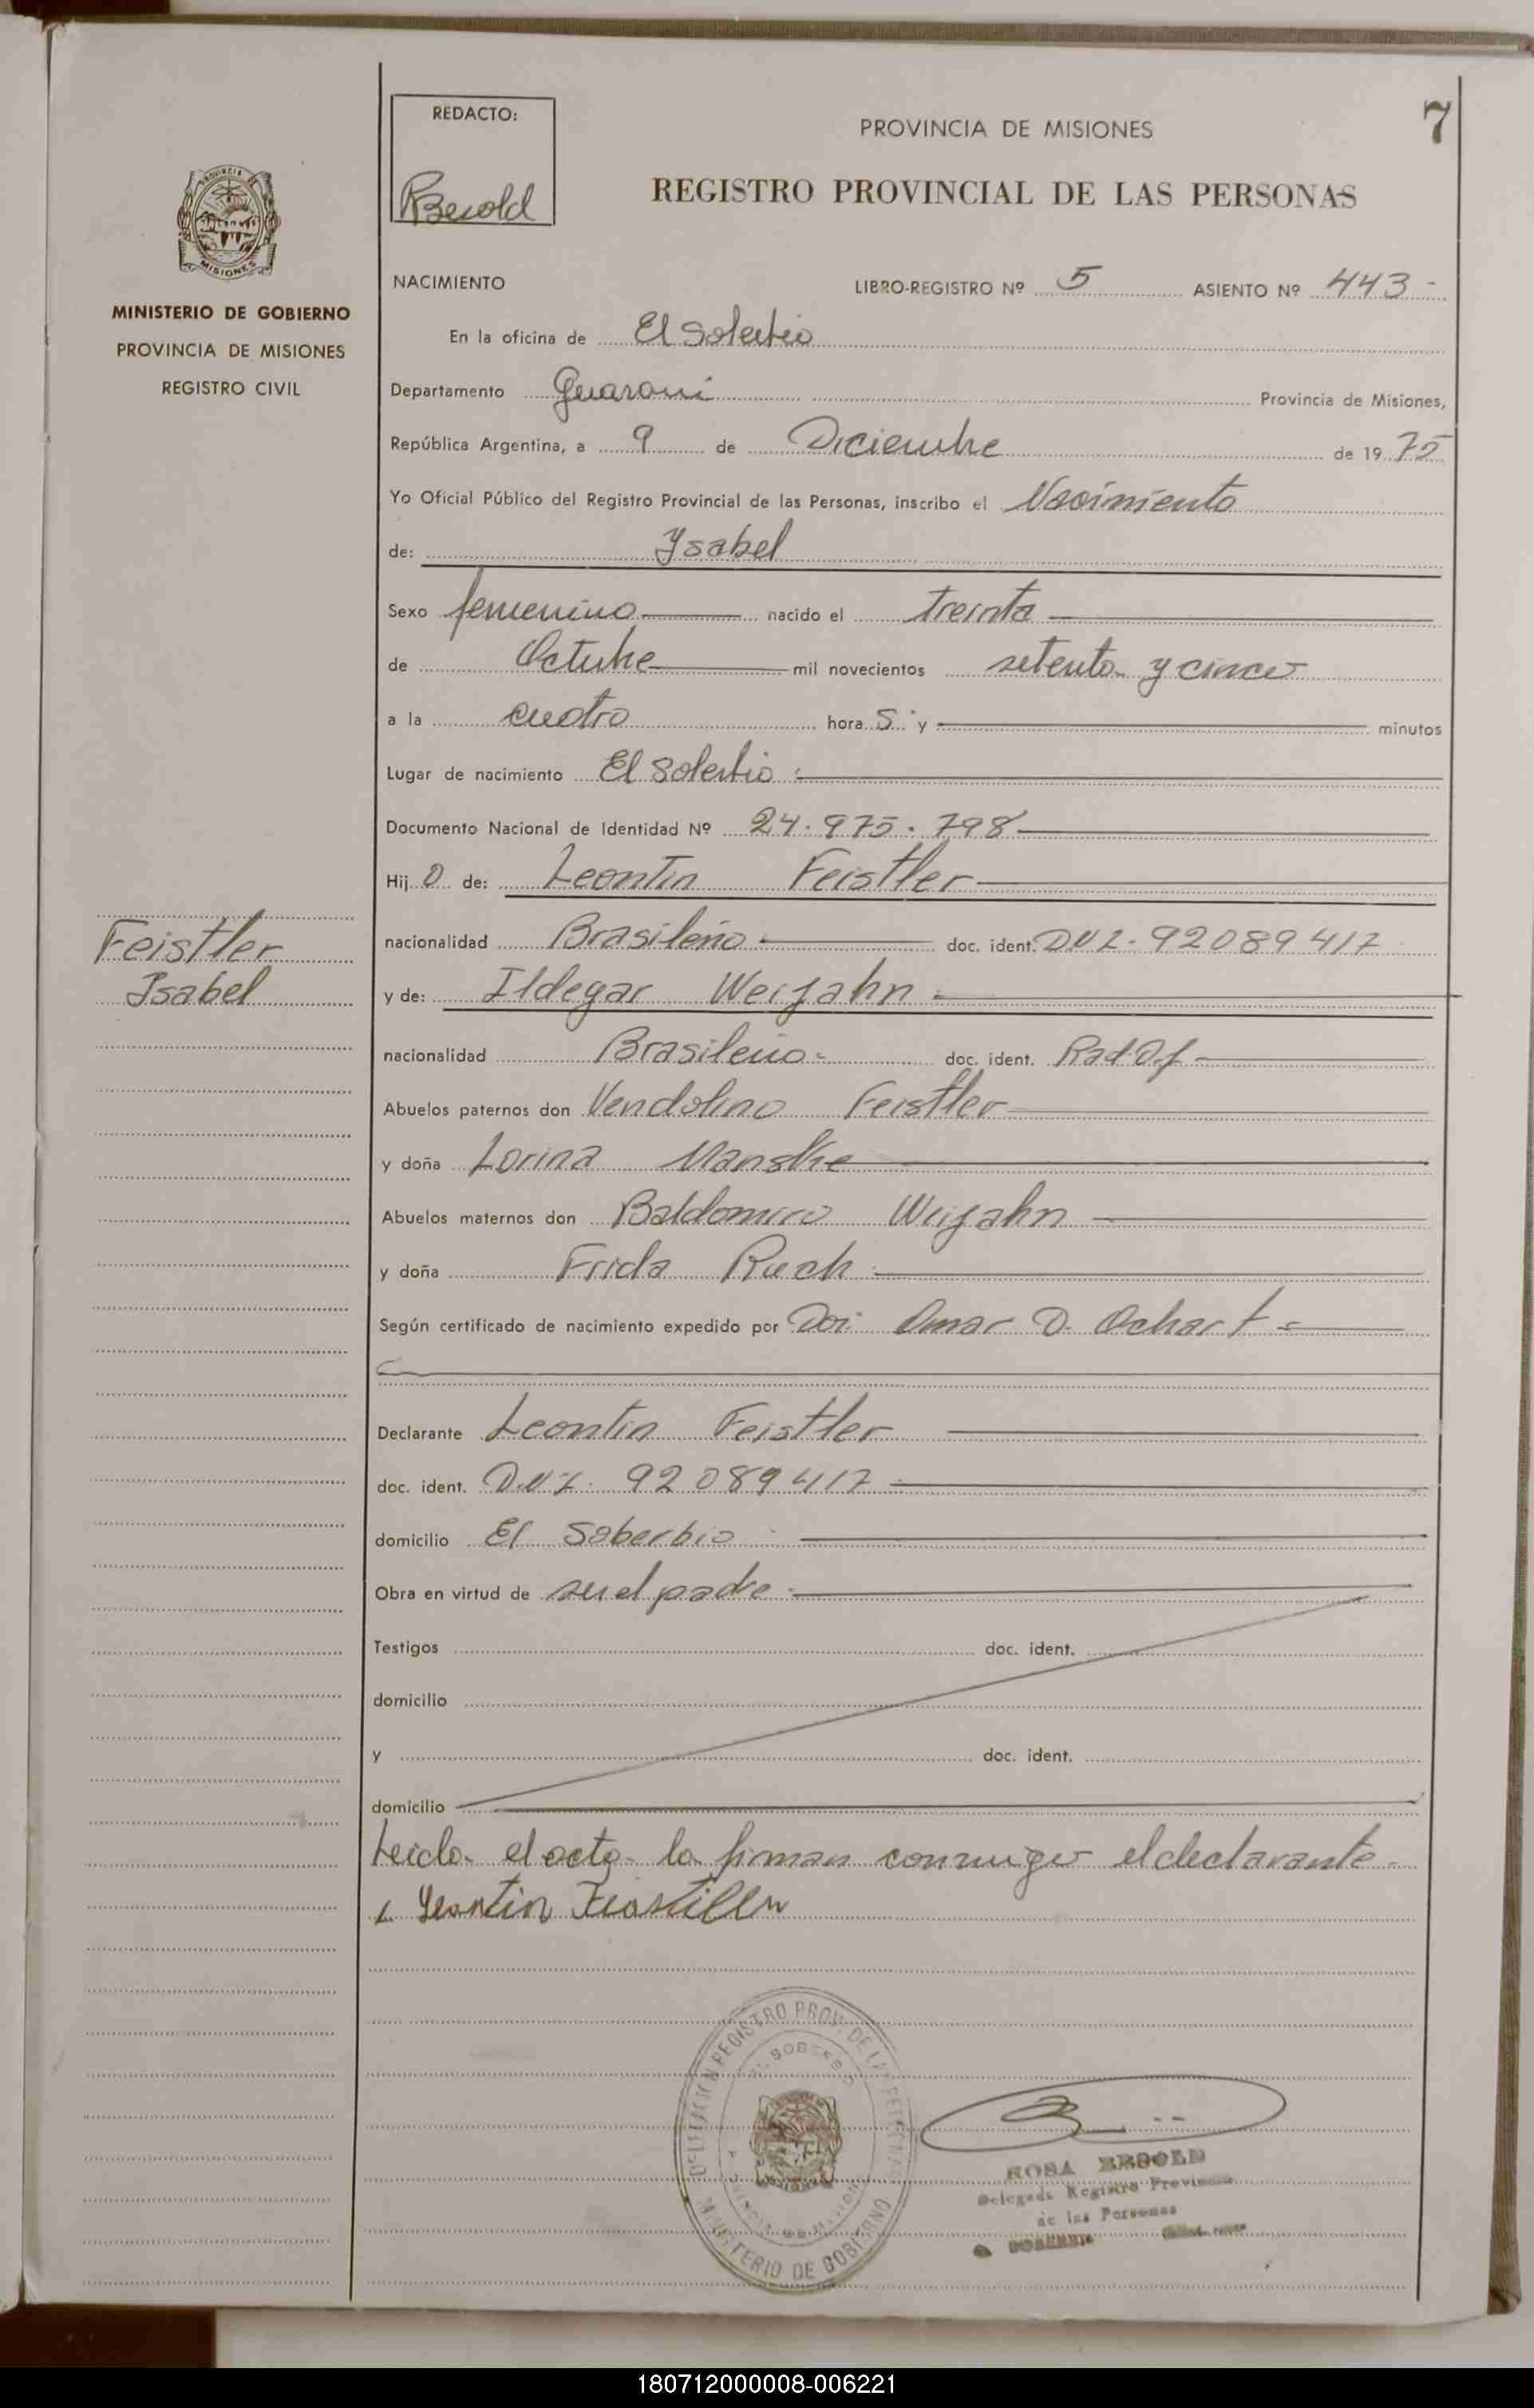 7
REDACTO:
Besold
PROVINCIA DE MISIONES
REGISTRO PROVINCIAL DE LAS PERSONAS
MISIONES
MINISTERIO DE GOBIERNO
PROVINCIA DE MISIONES
REGISTRO CIVIL
NACIMIENTO LIBRO-REGISTRO Nº 5 ASIENTO Nº 443-
En la oficina de El Soberbio
Departamento Guarani Provincia de Misiones,
República Argentina, a 9 de Diciembre de 1975
Yo Oficial Público del Registro Provincial de las Personas, inscribo el Nacimiento
de: Ysabel
Sexo femenino nacido el treinta
de Octubre mil novecientos setenta y cinco
a la cuatro hora S. y minutos
Lugar de nacimiento El Soberbio
Documento Nacional de Identidad Nº 24.975.798
Hij a de: Leontin Feistler
Feistler
Isabel
nacionalidad Brasileño doc. ident. DNI-92089417
y de: Ildegar Weijahn
nacionalidad Brasileño doc. ident.
Abuelos paternos don Vendolino Feistler
y doña Lorina Manske
Abuelos maternos don Baldomiro Weijahn
y doña Frida Ruch
Según certificado de nacimiento expedido por Omar D. Ochart
Declarante Leontin Feistler
doc. ident. D.N.I. 92089417
domicilio El Soberbio
Obra en virtud de ser el padre
Testigos doc. ident.
domicilio
y doc. ident.
domicilio
Leida el acta la firman conmigo el declarante
Leontin Feistller
DELEGACION REGISTRO PROV. DE LAS PERSONAS
EL SOBERBIO
PROVINCIA DE MISIONES
MINISTERIO DE GOBIERNO
ROSA BESOLD
Delegada Registro Provincial
de las Personas
SOBERBIO
180712000008-006221